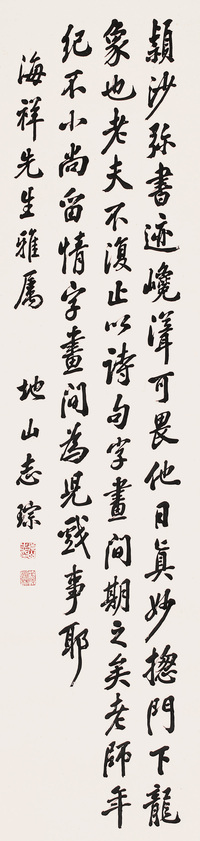 穎沙弥書迹巉聳可畏他日眞妙揔門下龍
象也老夫不復止以詩句字畫間期之矣老師年
紀不小尚留情字畫間為児戲事耶
海祥先生雅屬 地山志琮